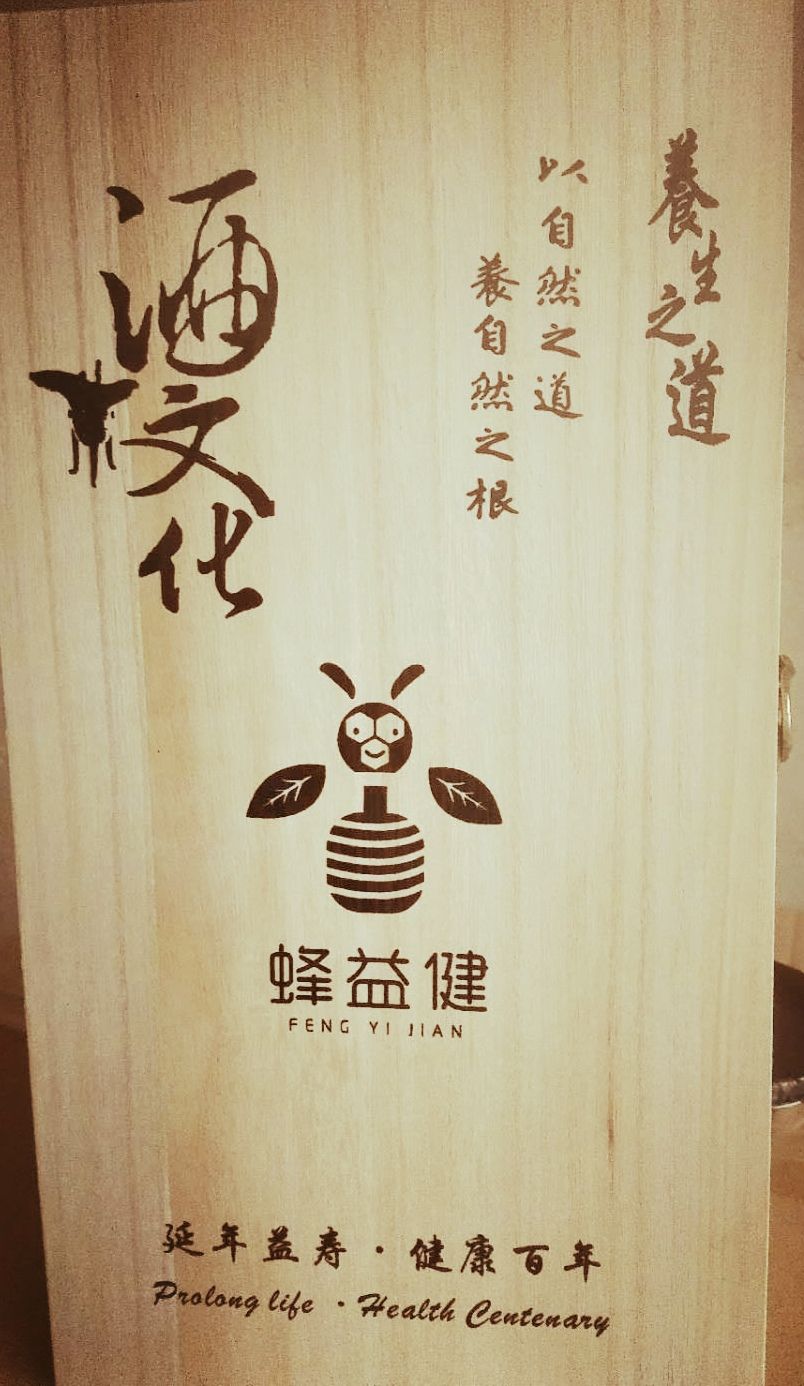 養生之道
以自然之道
養自然之根
酒文化
蜂益健
FENG YI JIAN
延年益寿·健康百年
Prolong life ·Health Centenary